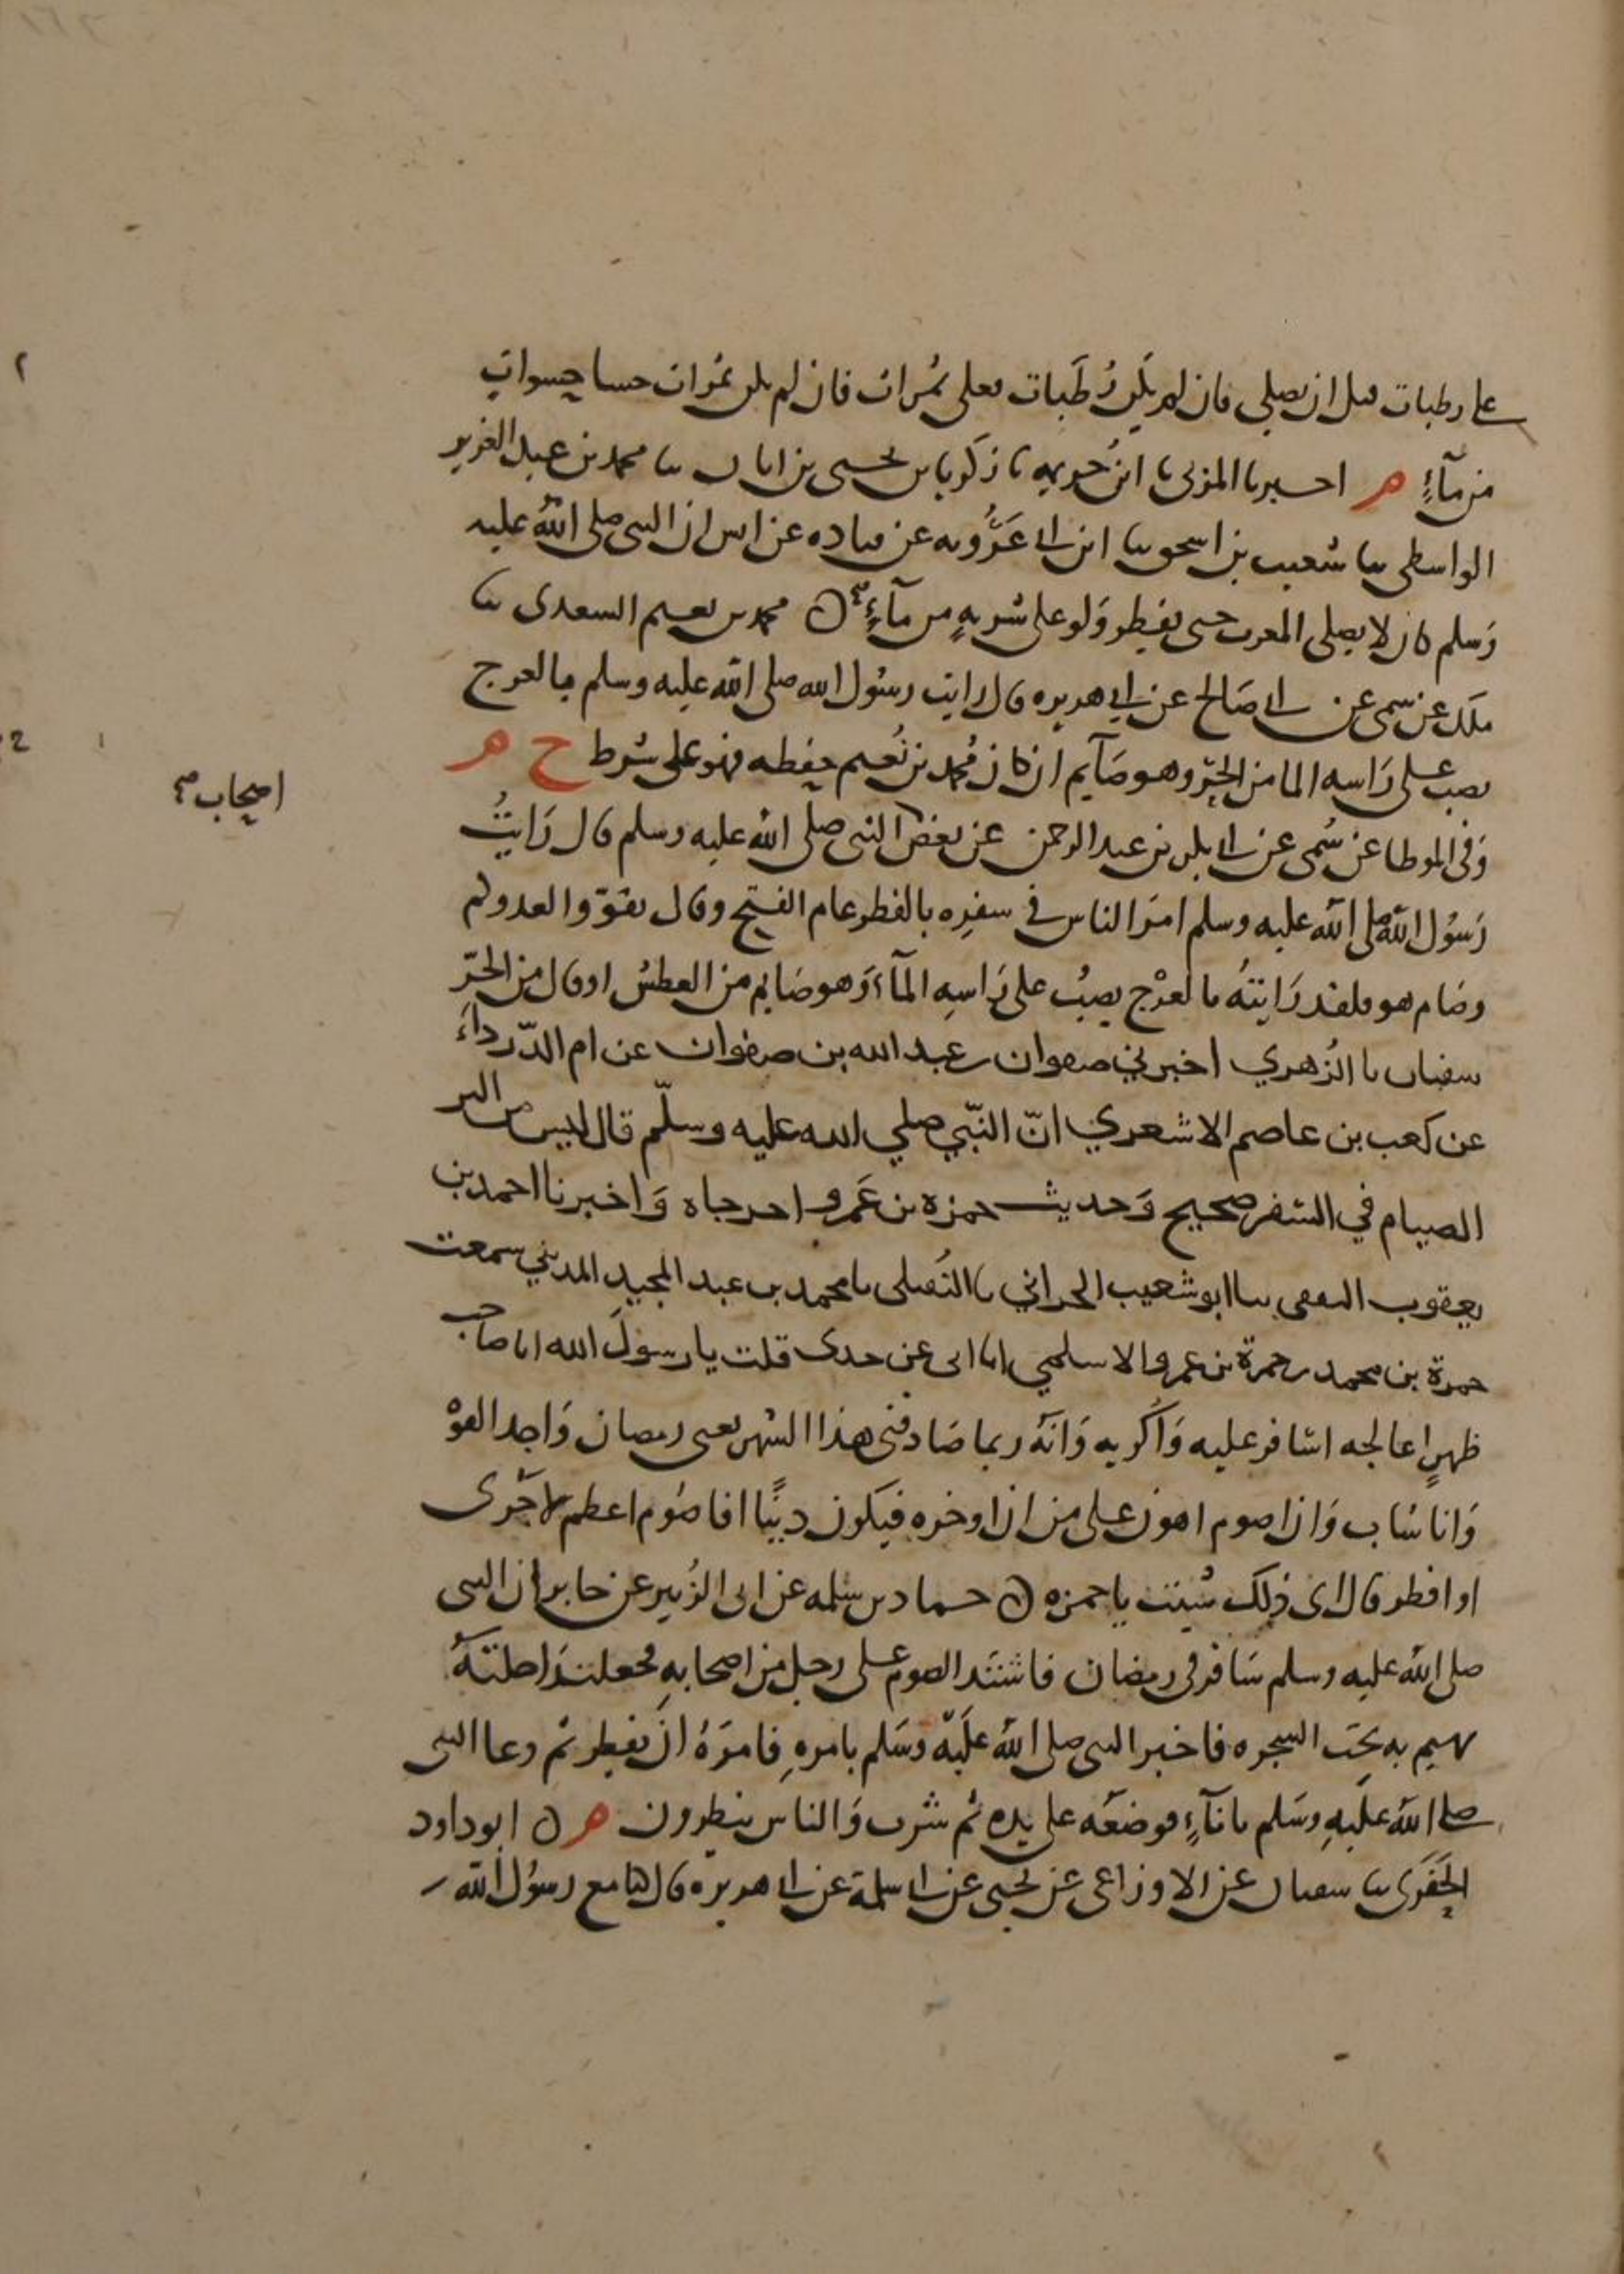 على رطبات قبل ان يصلى فان لم يكن رُطَبات فعلى تمرات فان لم يكن تمرات حسا حسوات
من مآءٍ هـ اخبرنا المزنى نا ابن خزيمه نا زكريا بن يحيى بن ابان نا محمد بن عبد العزيز
الواسطى نا شعيب بن اسحق نا ابن ابى عَرُوبه عن قتاده عن انس ان النبى صلى الله عليه
وَسلم كان لا يصلى المغرب حتى يفطر وَلو على شربهٍ من مآءٍ م ن محمد بن نعيم السعدى نا
ملك عن سمى عن ابى صَالح عن ابى هريره قال رايت رسُول الله صلى الله عليه وسلم بالعرج
يصب على رَاسه الما من الحَرِّ وهو صَآيم ان كان مُحمد بن نُعيم حفظه فهو على شرط خ م هـ
وَفى الموطا عن سُمى عن ابى بكر بن عبد الرحمن عن بعض النبى صلى الله عليه وسلم قال رَايتُ
اصحاب صح
رَسُول الله صلى الله عليه وسلم امرَ الناس فى سفرِه بالفطر عام الفتح وقال تقوّوا لعدوكم
وصَام هو ولقد رَايتهُ بالعرْج يصبُ على رَاسِهِ المآء وَهو صَايم من العطش او قال من الحَرِّ
سفيان نا الزُهري اخبرني صفوان بن عبد الله بن صفوان عن ام الدّرداءَ
عن كعب بن عاصم الاشعري انّ النّبّي صلي الله عليه وسلّم قال ليس من البر
الصيام في السّفر صحيح وَحديث حمزه بن عَمرو اخرجاه وَاخبرنا احمد بن
يعقوب الثقفى نا ابو شعيب الحراني نا النُفيلى نا محمد بن عبد المجيد المديني سمعت
حمزة بن محمد بن حمزة بن عمرو الاسلمي انا ابى عن جدى قلت يا رسولَ الله انا صاحب
ظهرٍ اعالجه اسَافر عليه وَاُكْريه وَانَّه ربما صَادفنى هذا الشهر يعنى رمضان وَاجد القوْ
وَانا شاب وَان اصوم اهون على من ان اوخره فيكون ديْنًا افاصُوم اعظم لاجْرى
او افطر قال اى ذلك شيت يا حمزه ن حماد بن سَلمه عن ابى الزُبير عن جابر ان النبى
صلى الله عليه وسلم سَافر فى رمضان فاشتد الصوم على رجل من اصحابهِ فجعلت رَاحلتهُ
تهيم به تحت الشجره فاخبر النبى صلى الله علَيه وسَلم بامرهِ فامرَهُ ان يفطر ثم دعا النبى
صلى الله عليهِ وسَلم بانآءٍ فوضعَه على يده ثم شرب وَالناس ينظرون هـ ن ابو داود
الحَفَرى نا سفيان عن الاوزاعى عن يحيى عن ابى سلمة عن ابى هريره قال كنا مع رسوُل الله